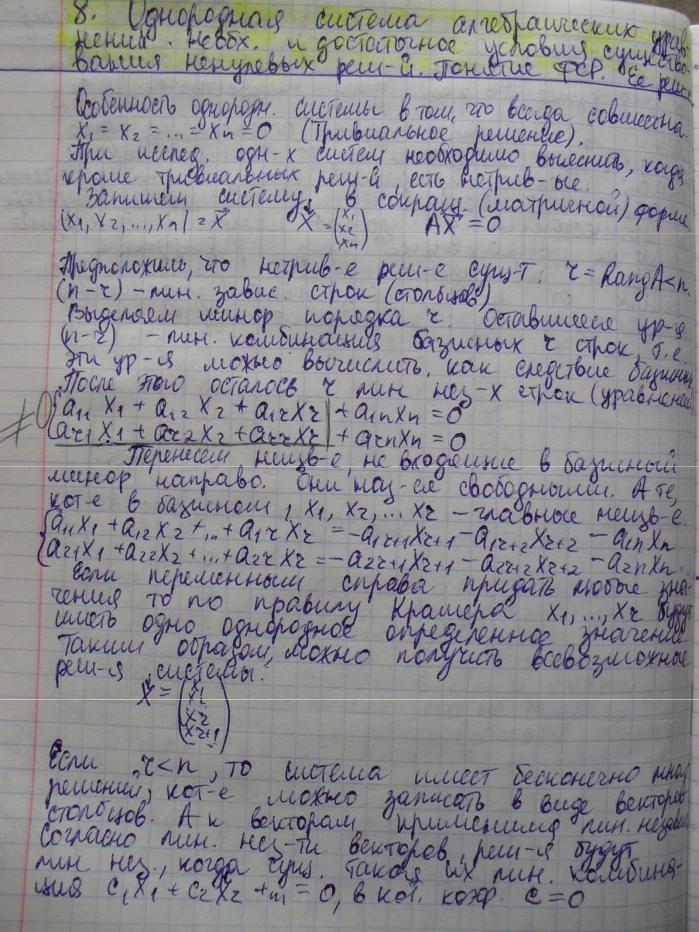 8. Однородная система алгебраических урав-
нений. необх. и достаточное условия существо-
вания ненулевых реш-й. Понятие ФСР. Её реше-
Особенность однородн. системы в том, что всегда совместна
x₁ = x₂ = ... = xn = 0 (Тривиальное решение).
При исслед. одн-х систем необходимо выяснить, когда
кроме тривиальных реш-й, есть нетрив-ые.
Запишем систему в сокращ. (матричной) форме
(x₁, x₂, ..., xn) = X⃗ X⃗ = (x₁ x₂ xn) AX⃗ = 0
Предположим, что нетрив-е реш-е сущ-т. r = RangA < n.
(n-r) - лин. завис. строк (столбцов)
Выделяем минор порядка r. Оставшиеся ур-я
(n-r) - лин. комбинация базисных r строк, т.е.
эти ур-я можно вычислить, как следствие базисных
После этого осталось r лин нез-х строк (уравнений)
≠0 { a₁₁ x₁ + a₁₂ x₂ + a₁r xr | + a₁n xn = 0
ar₁ x₁ + ar₂ x₂ + arr xr | + arn xn = 0
Перенесем неизв-е, не входящие в базисный
минор направо. Они наз-ся свободными. А те,
кот-е в базисном, x₁, x₂, ... xr - главные неизв-е.
{ a₁₁x₁ + a₁₂x₂ + ... + a₁r xr = -a₁r+₁xr+₁ - a₁r+₂xr+₂ - a₁n xn
a₂₁x₁ + a₂₂x₂ + ... + a₂r xr = -a₂r+₁xr+₁ - a₂r+₂xr+₂ - a₂n xn.
Если переменным справа придать любые зна-
чения то по правилу Крамера x₁, ..., xr будут
иметь одно однородное определенное значение
Таким образом, можно получить всевозможные
реш-я системы.
X⃗ = (x₁
x₂
xr
xr+₁)
Если r < n, то система имеет бесконечно мног
решений, кот-е можно записать в виде векторов
столбцов. А к векторам применима лин. незави
Согласно лин. нез-ти векторов, реш-я будут
лин нез., когда сущ. такая их лин. комбина-
ция c₁x₁ + c₂x₂ + ... = 0, в кот. коэф. c = 0